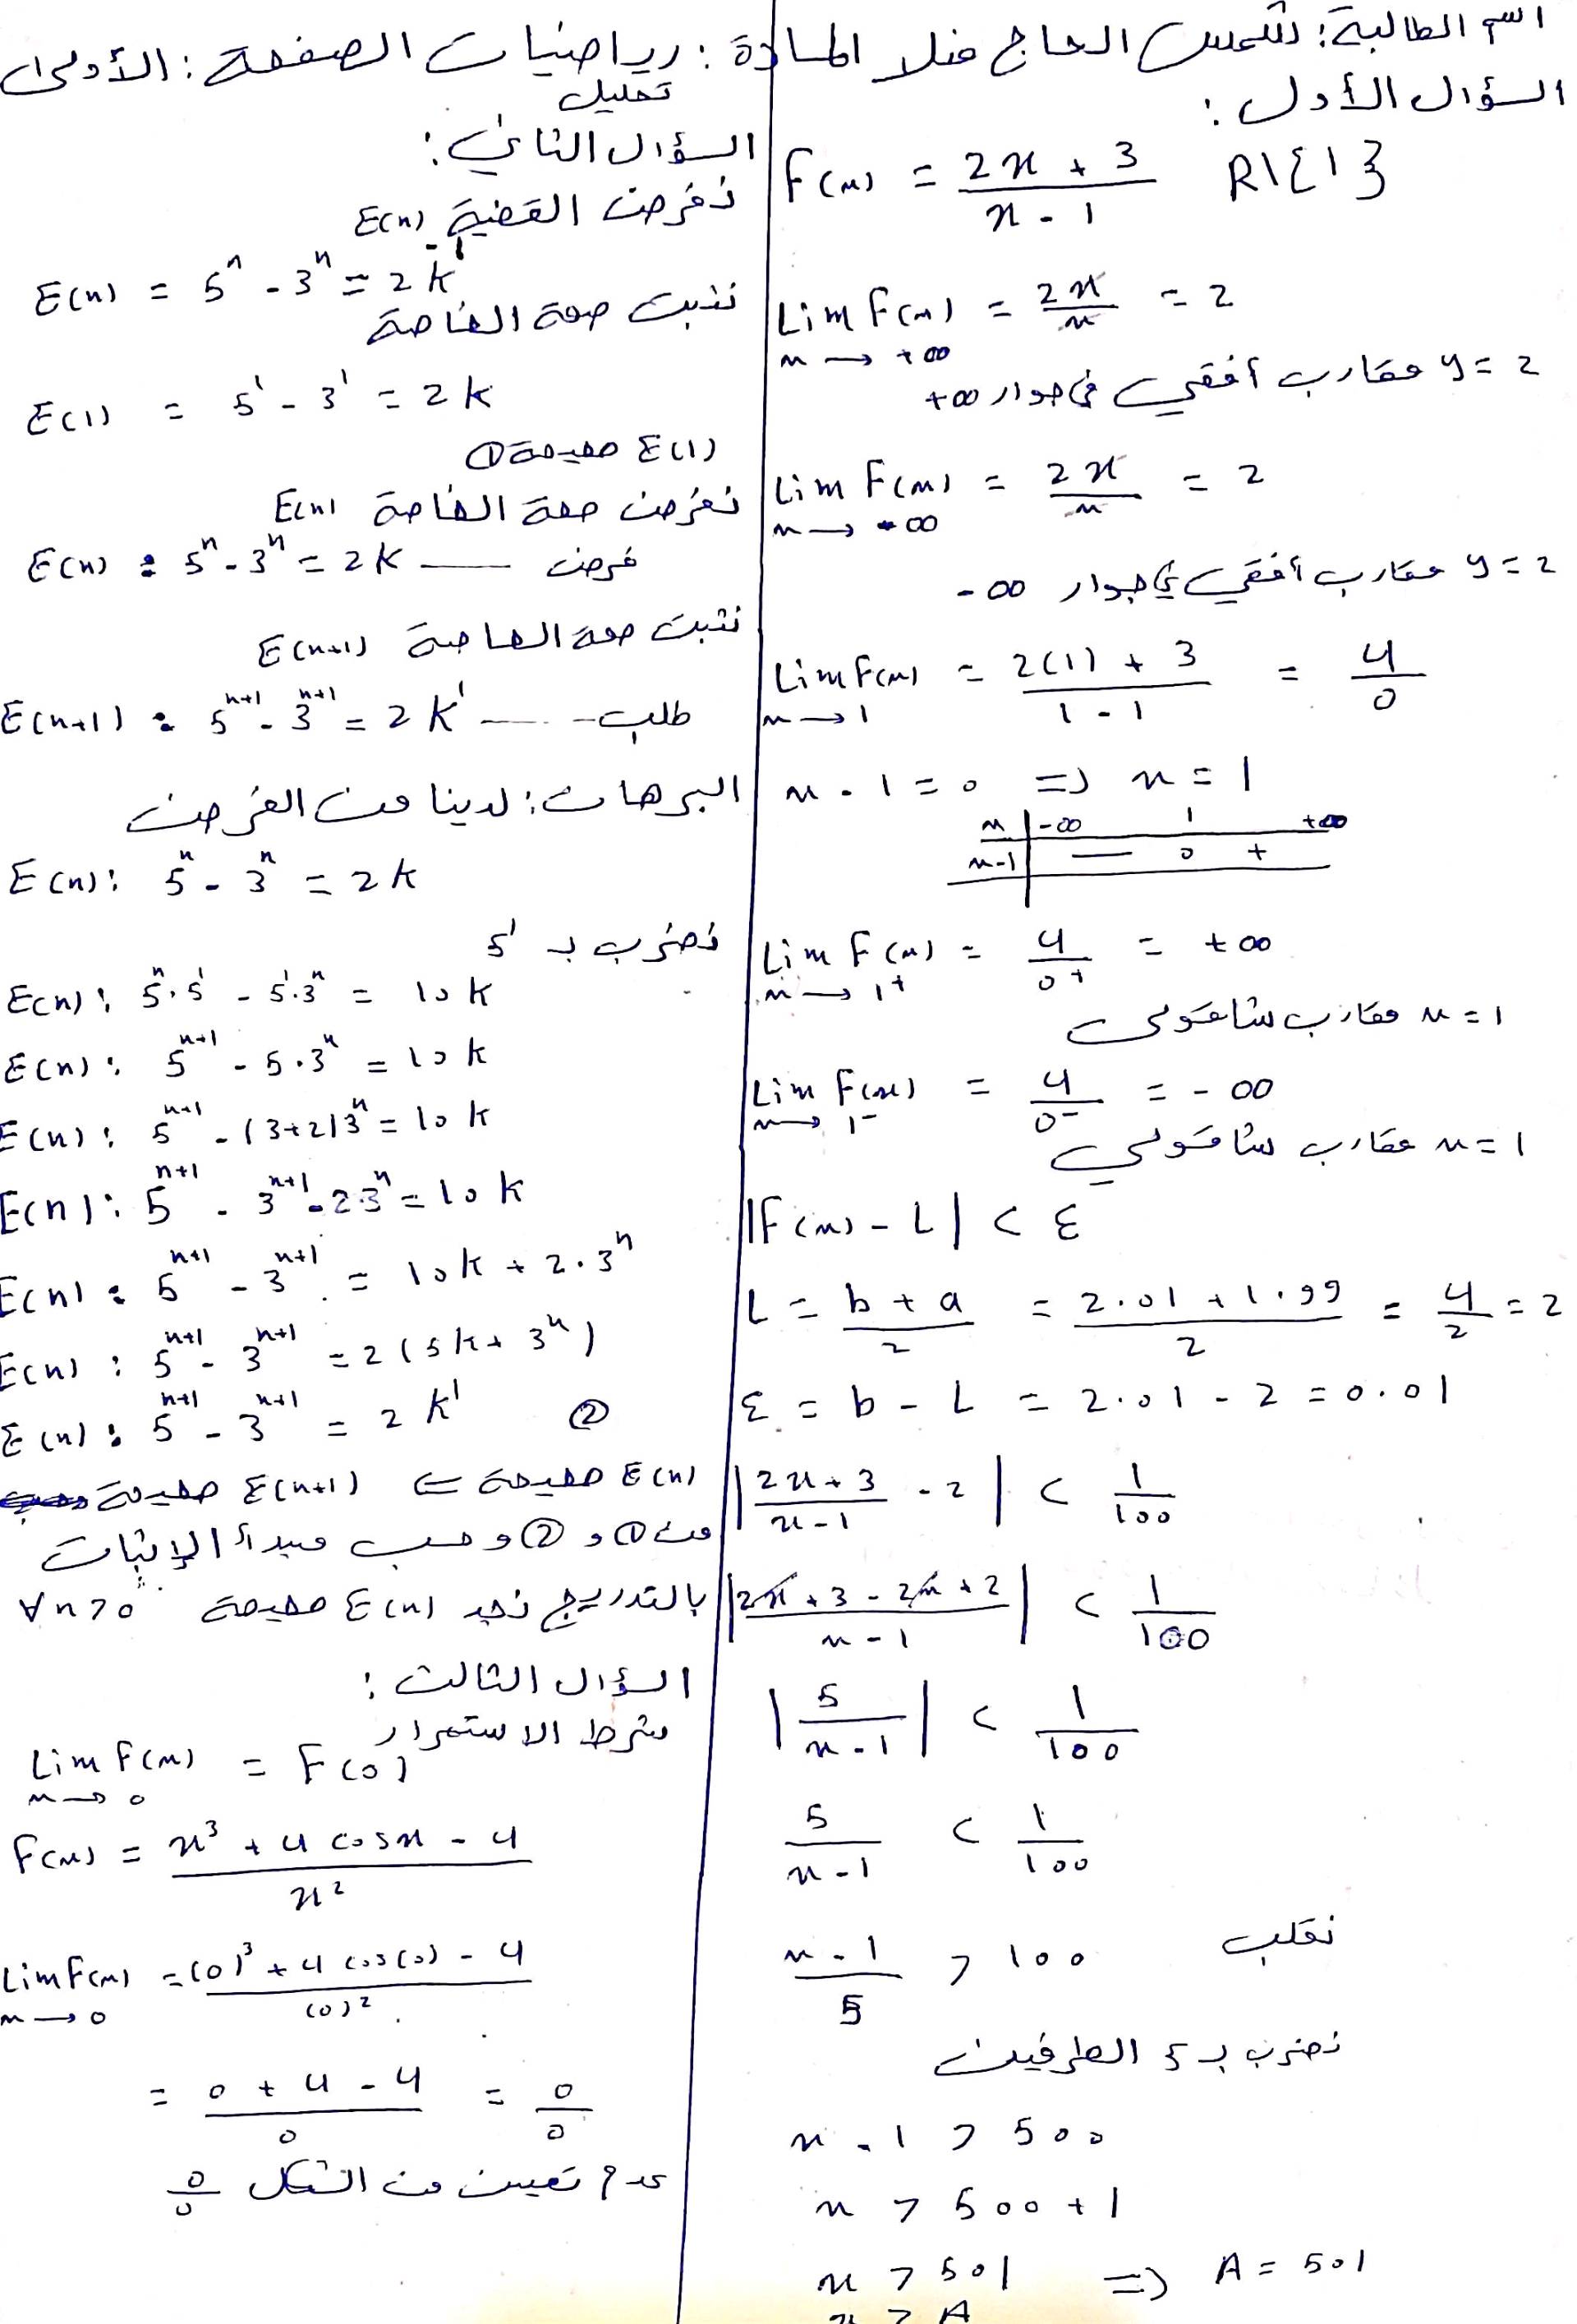 اسم الطالبة: شمس الحاج منلا المادة: رياضيات الصفحة: الأولى
تحليل
السؤال الأول:
F(x) = (2x + 3)/(x - 1) R\{1}
Lim F(x) = 2x/x = 2
x → +∞
y = 2 مقارب أفقي في جوار +∞
Lim F(x) = 2x/x = 2
x → -∞
y = 2 مقارب أفقي في جوار -∞
Lim F(x) = (2(1) + 3)/(1 - 1) = 4/0
x → 1
x - 1 = 0 => x = 1
x | -∞ 1 +∞
x-1 | — 0 +
Lim F(x) = 4/0+ = +∞
x → 1+
x = 1 مقارب شاقولي
Lim F(x) = 4/0- = -∞
x → 1-
x = 1 مقارب شاقولي
|F(x) - L| < ε
L = (b + a)/2 = (2.01 + 1.99)/2 = 4/2 = 2
ε = b - L = 2.01 - 2 = 0.01
|(2x + 3)/(x - 1) - 2| < 1/100
|(2x + 3 - 2x + 2)/(x - 1)| < 1/100
|5/(x - 1)| < 1/100
5/(x - 1) < 1/100
(x - 1)/5 > 100 نقلب
نضرب بـ 5 الطرفين
x - 1 > 500
x > 500 + 1
x > 501 => A = 501
x > A
السؤال الثاني:
نفرض القضية E(n)
E(n) = 5^n - 3^n = 2k
نثبت صحة الخاصة
E(1) = 5^1 - 3^1 = 2k
E(1) صحيحة ①
نفرض صحة الخاصة E(n)
E(n) : 5^n - 3^n = 2k — فرض
نثبت صحة الخاصة E(n+1)
E(n+1) : 5^n+1 - 3^n+1 = 2k' — طلب
البرهان: لدينا من الفرض
E(n): 5^n - 3^n = 2k
نضرب بـ 5^1
E(n): 5^n.5^1 - 5^1.3^n = 10k
E(n): 5^n+1 - 5.3^n = 10k
E(n): 5^n+1 - (3+2)3^n = 10k
E(n): 5^n+1 - 3^n+1 - 2.3^n = 10k
E(n): 5^n+1 - 3^n+1 = 10k + 2.3^n
E(n): 5^n+1 - 3^n+1 = 2(5k + 3^n)
E(n): 5^n+1 - 3^n+1 = 2k' ②
E(n) صحيحة <= E(n+1) صحيحة
من ① و ② وحسب مبدأ الإثبات
بالتدريج نجد E(n) صحيحة ∀n>0
السؤال الثالث:
شرط الاستمرار
Lim F(x) = F(0)
x → 0
F(x) = (x^3 + 4 cosx - 4)/x^2
Lim F(x) = ((0)^3 + 4 cos(0) - 4)/(0)^2
x → 0
= (0 + 4 - 4)/0 = 0/0
عدم تعيين من الشكل 0/0